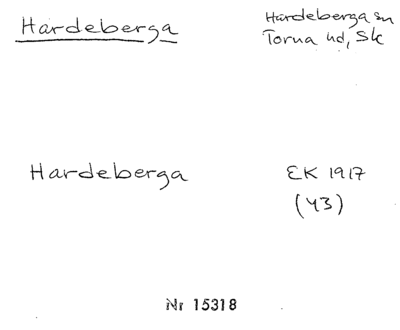 Hardeberga
Hardeberga sn
Torna hd, Sk
Hardeberga
EK 1917
(43)
Nr 15318